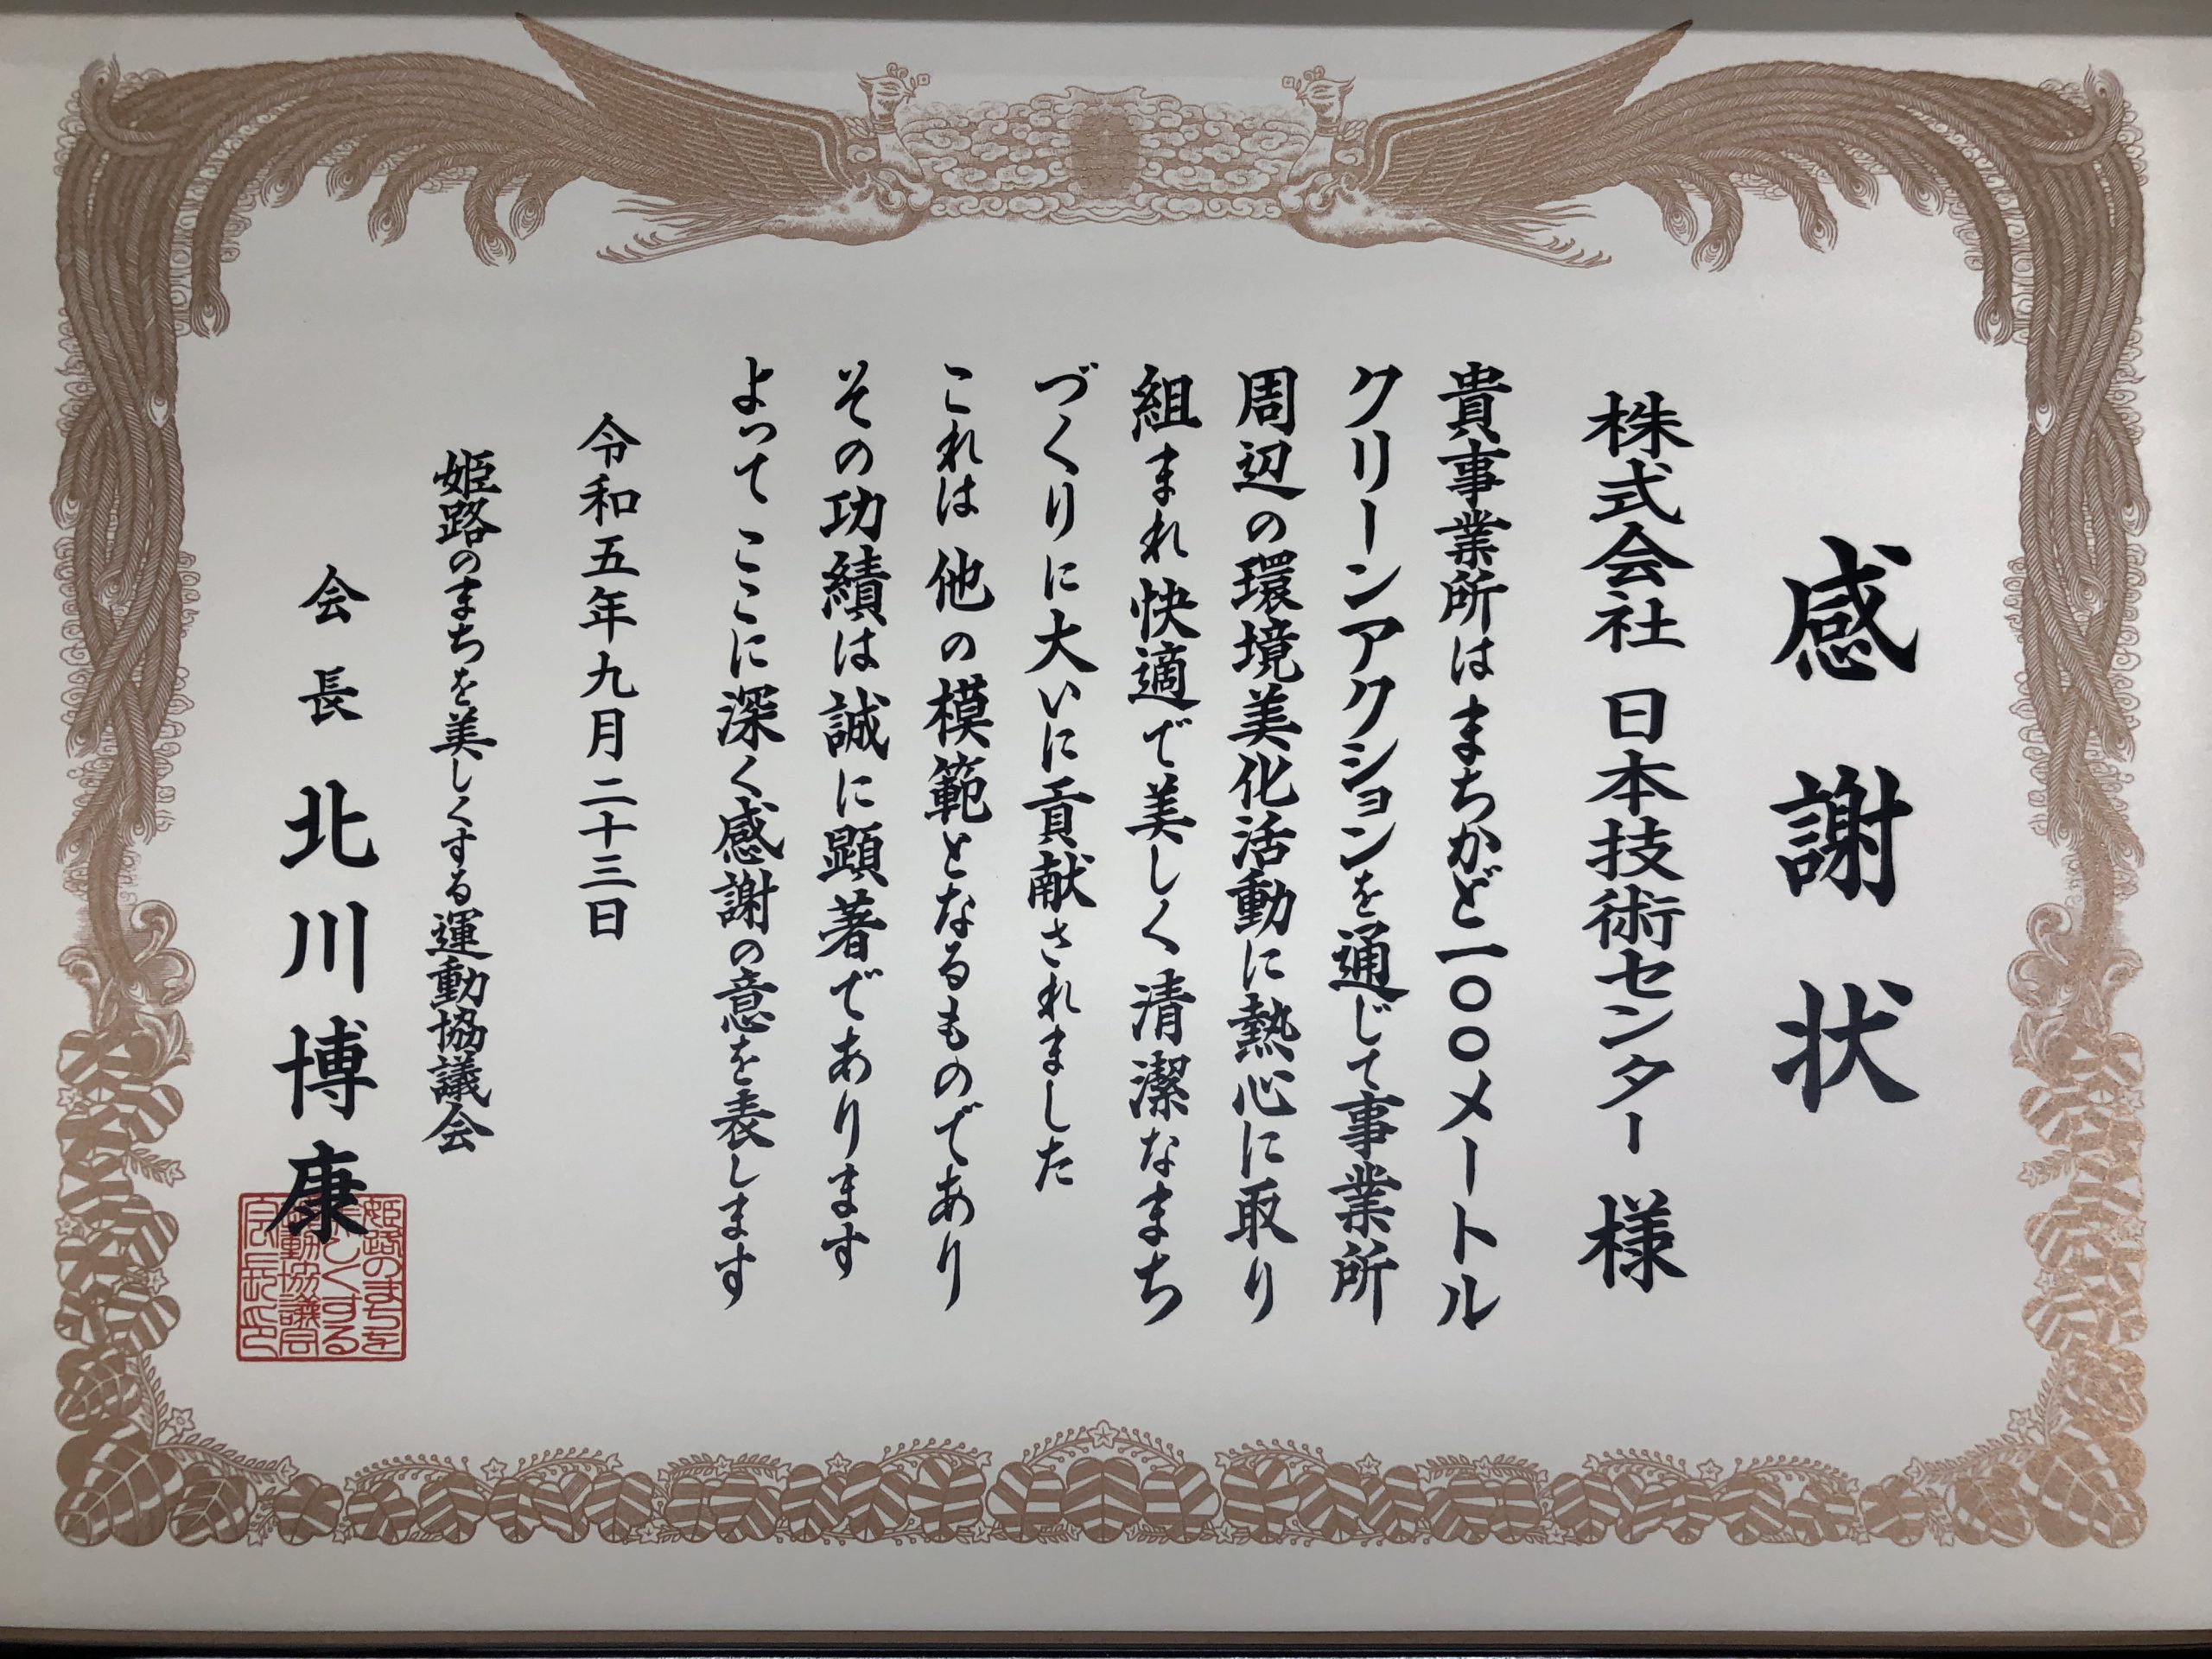 感謝状
株式会社 日本技術センター 様
貴事業所はまちかど一〇〇メートル
クリーンアクションを通じて事業所
周辺の環境美化活動に熱心に取り
組まれ快適で美しく清潔なまち
づくりに大いに貢献されました
これは他の模範となるものであり
その功績は誠に顕著であります
よってここに深く感謝の意を表します
令和五年九月二十三日
姫路のまちを美しくする運動協議会
会長 北川博康
姫路のまちを
美しくする
運動協議会
会長印